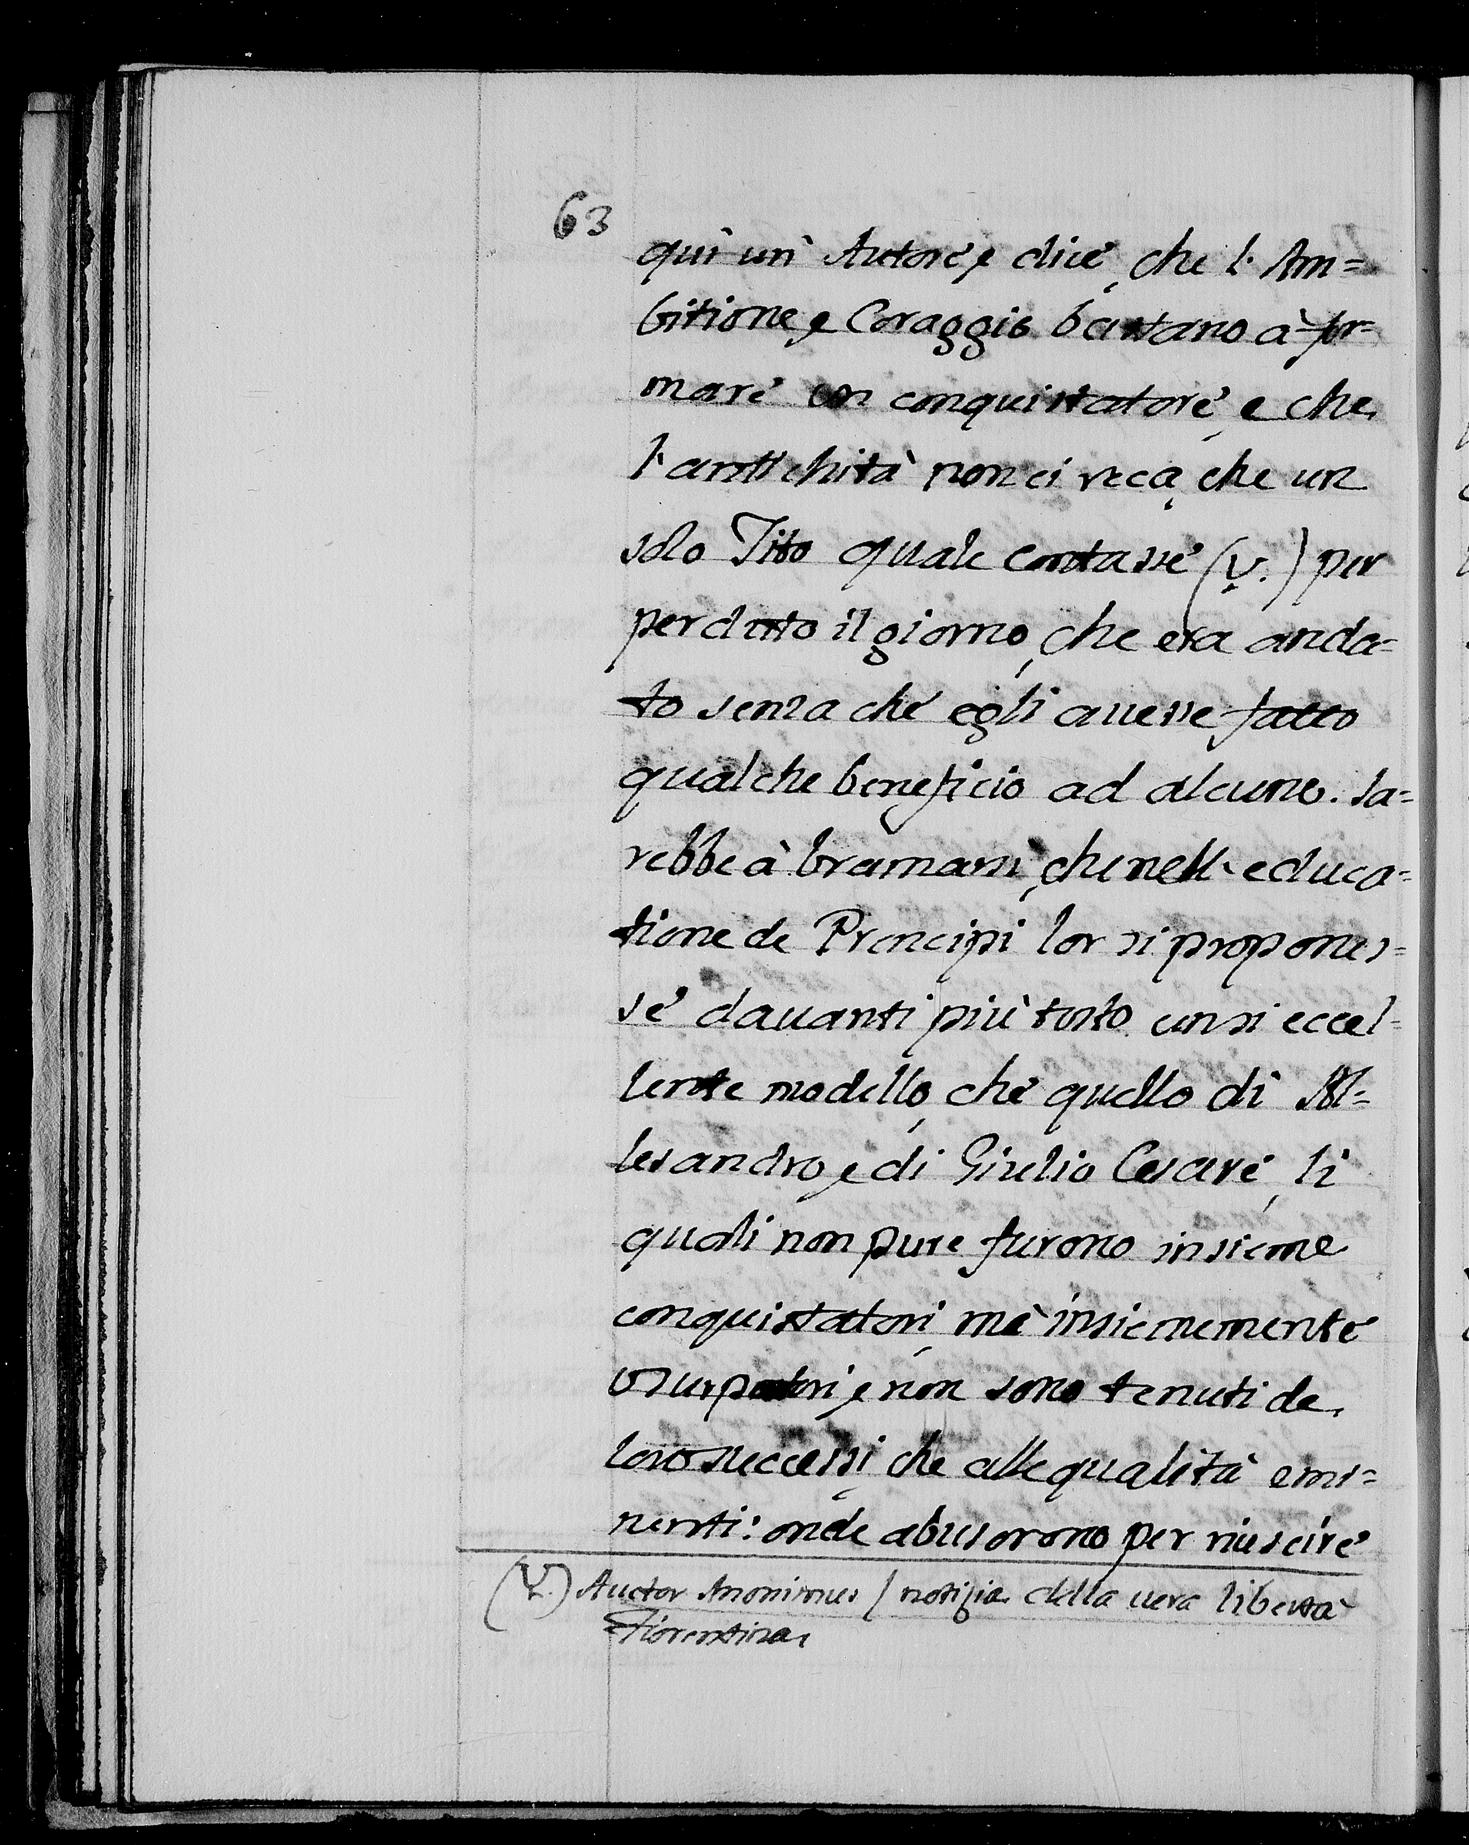 63
quì un' Autore, e dice, che l'Am=
bitione, e Coraggio bastano à for=
mare un conquistatore, e che
l'antichità non ci reca, che un
solo Tito quale contasse (V.) per
perduto il giorno, che era anda=
to senza che egli auesse fatto
qualche beneficio ad alcuno. Sa=
rebbe à bramarsi, che nell'educa=
tione de Prencipi lor si propones=
se dauanti più tosto un si eccel=
lente modello, che quello di Al=
lesandro, e di Giulio Cesare, li
quali non pure furono insieme
conquistatori, mà insiememente
Usurpatori, e non sono tenuti de
loro successi, che alle qualità emi=
nenti: onde abusorono per riuscire
(V.) Auctor Anonimus / notizia della uera libertà
Fiorentina